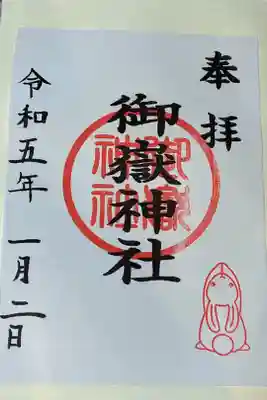 奉拝
御嶽神社
御嶽
神社
令和五年 一月二日